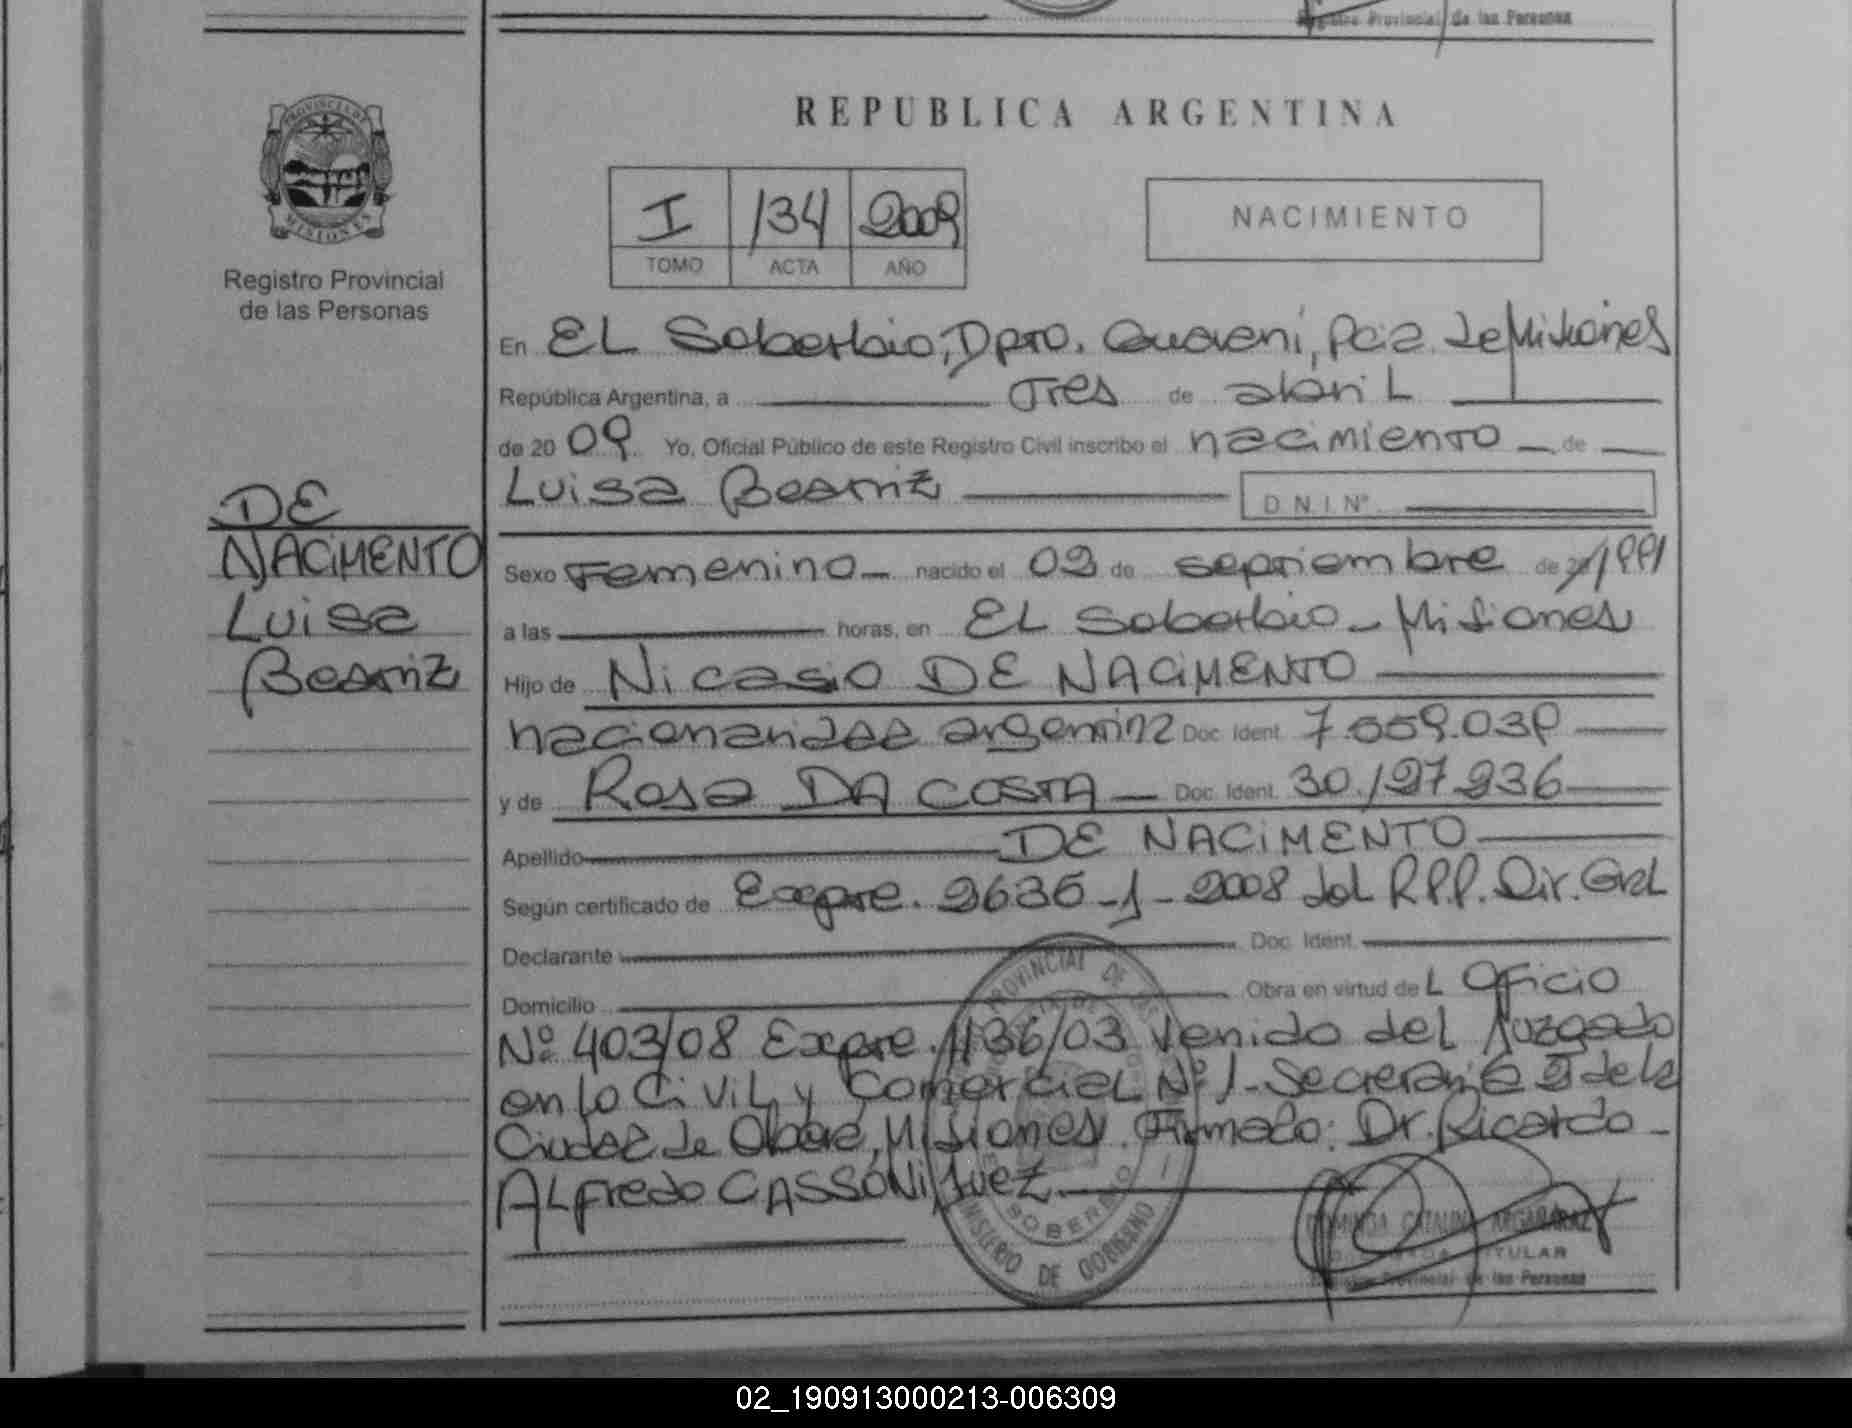 Registro Provincial de las Personas
PROVINCIA DE
MISIONES
Registro Provincial
de las Personas
REPUBLICA ARGENTINA
I 134 2009
TOMO ACTA AÑO
NACIMIENTO
En EL Soberbio, Dpto. Guarani, Pcia. de Misiones
República Argentina, a Tres de abriL
de 20 09 Yo, Oficial Público de este Registro Civil inscribo el nacimiento de
Luisa Beatriz D.N.I. Nº
DE
NACIMENTO
Luisa
Beatriz
Sexo Femenino nacido el 02 de septiembre de 20 1991
a las horas, en EL Soberbio - Misiones
Hijo de Nicasio DE NACIMENTO
nacionalidad argentina Doc. Ident. 7.559.039
y de Rosa DA COSTA Doc. Ident. 30.127.236
Apellido DE NACIMENTO
Según certificado de Expte. 2635-J-2008 del R.P.P. Dir. Gral
Declarante Doc. Ident.
Domicilio Obra en virtud de L Oficio
Nº 403/08 Expte. 1136/03 venido del Juzgado
en lo CiviL y ComerciaL Nº 1 - Secretaria 2 de la
Ciudad de Oberá, Misiones. Firmado: Dr. Ricardo
ALfredo CASSONi Juez
PROVINCIAL DE LAS
SOBERBIO
MINISTERIO DE GOBIERNO
DOMINGA CATALINA ARGAÑARAZ
TITULAR
Registro Provincial de las Personas
02_190913000213-006309